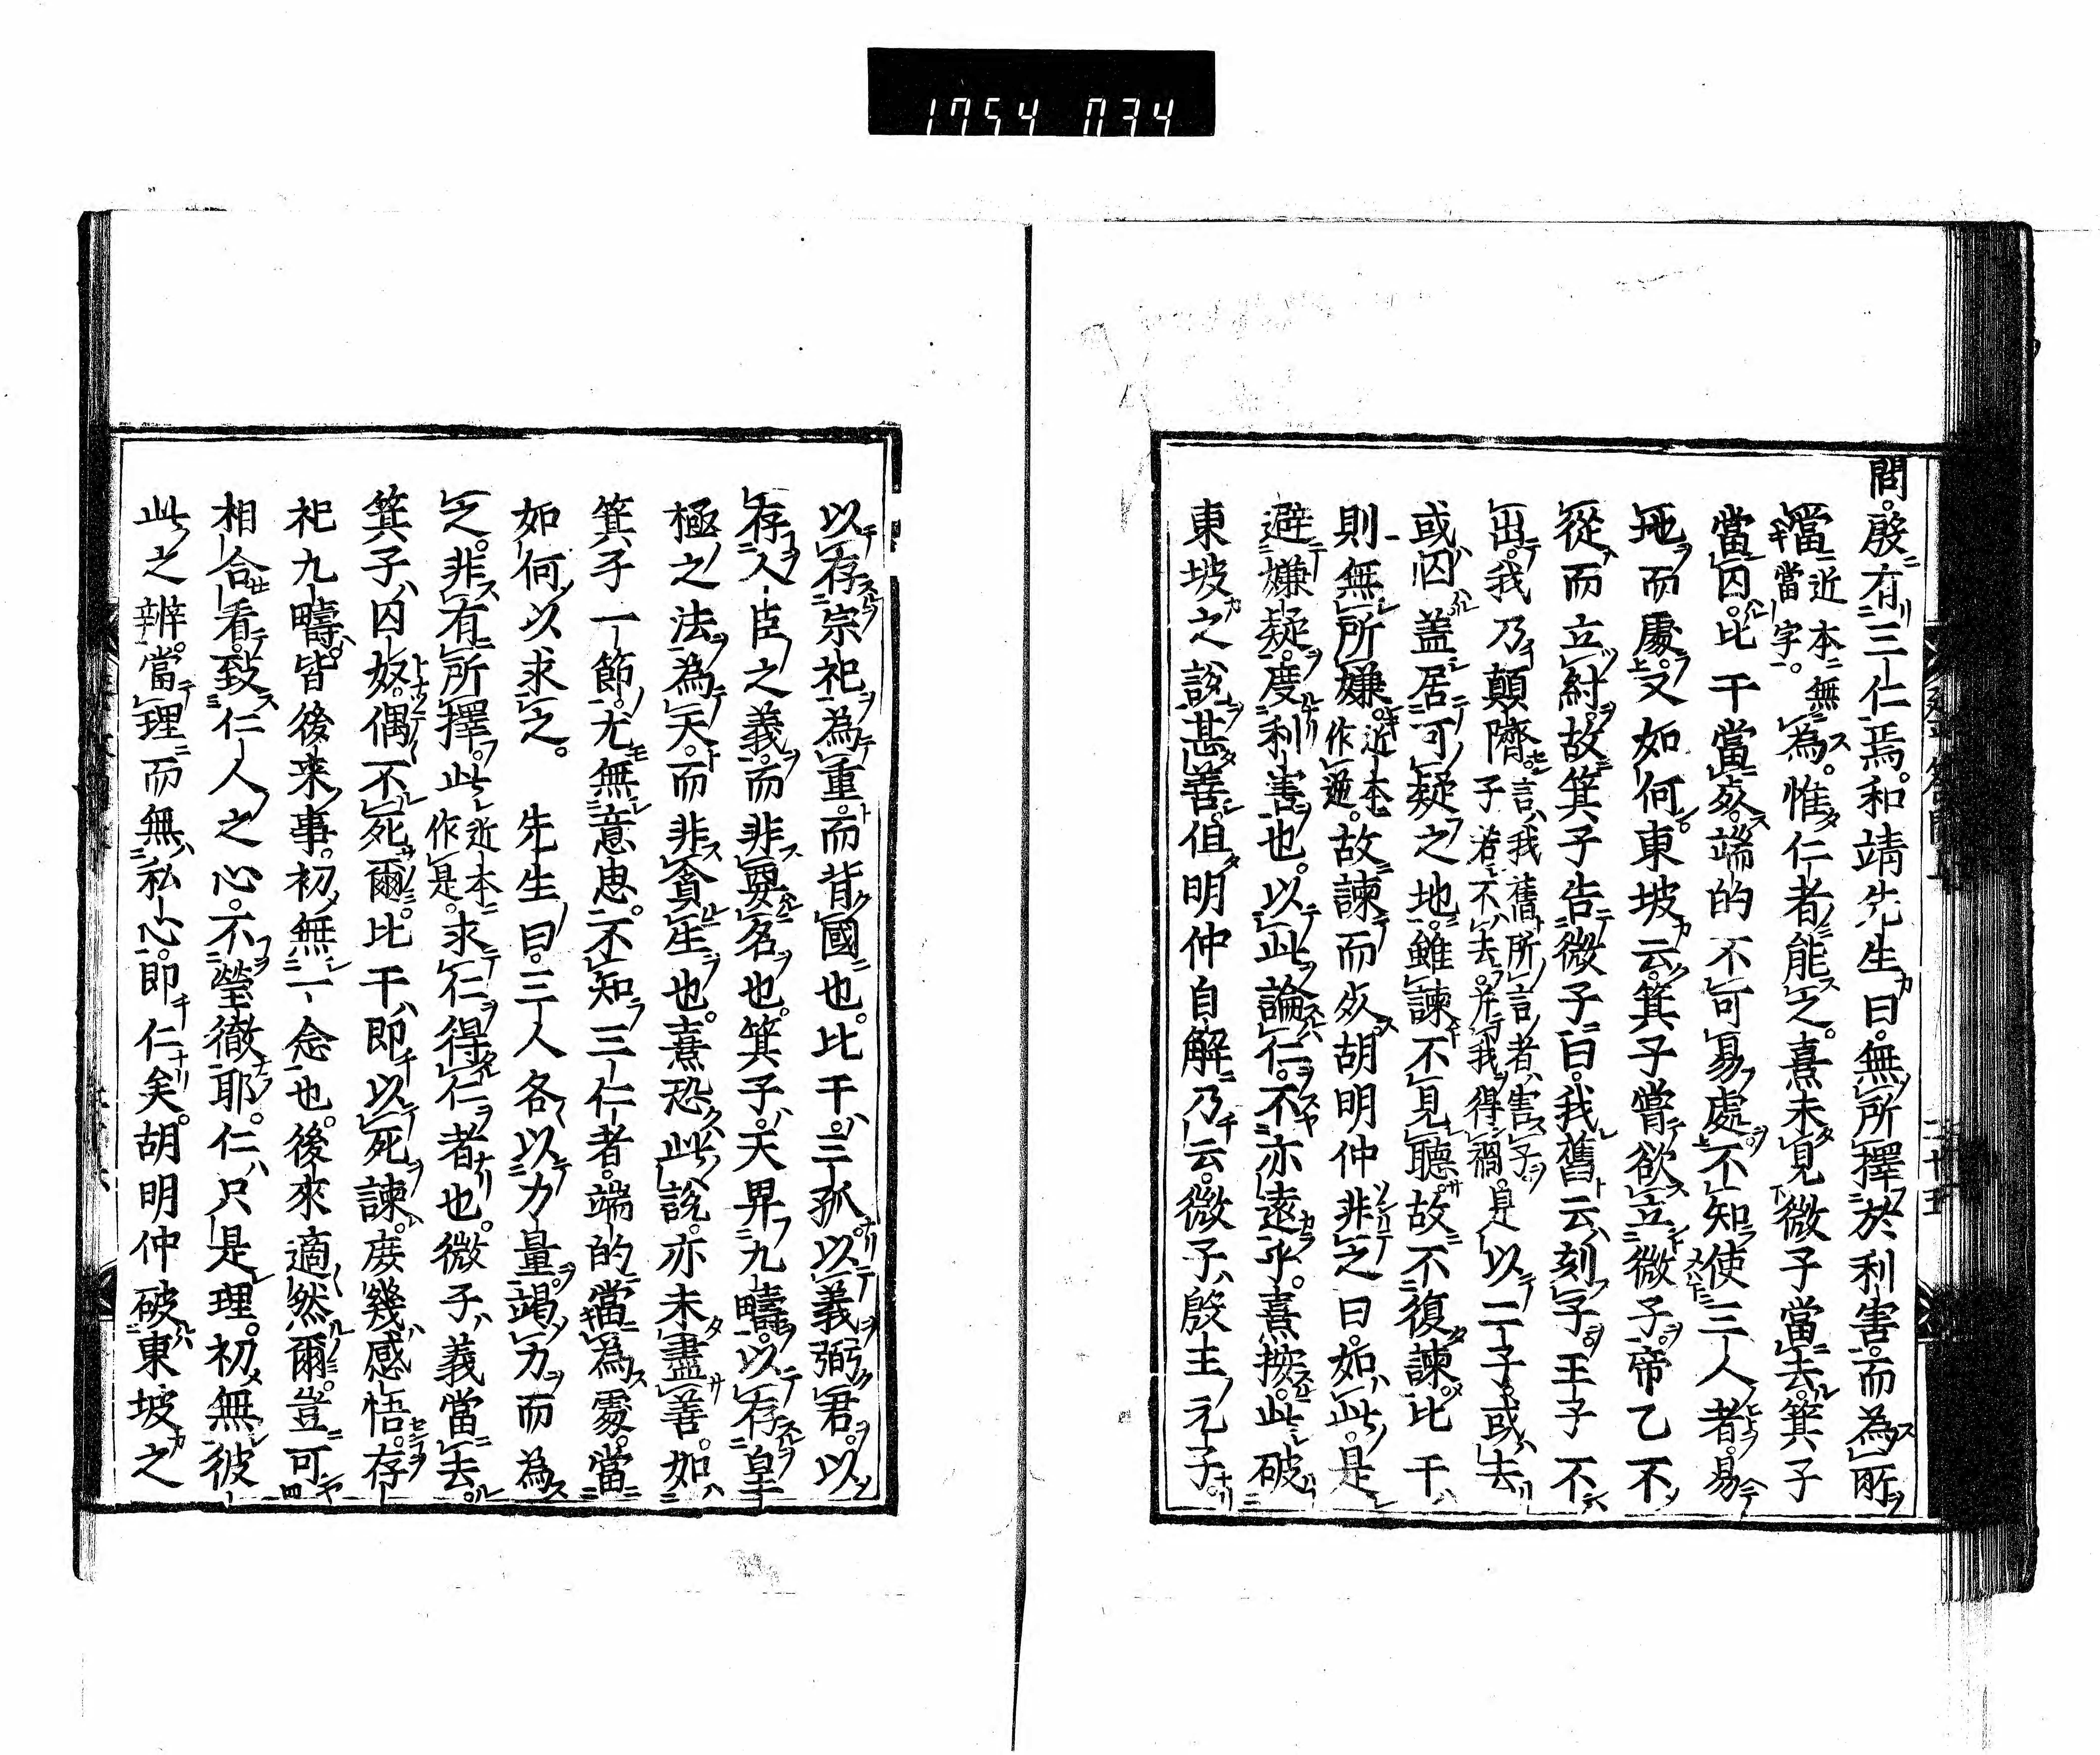 1754 034
問。殷有三仁焉。和靖先生曰。無所擇於利害。而為所
當近本無當字。為。惟仁者能之。熹未見微子當去。箕子
當囚。比干當死。端的不可易處。不知使三人者。易
地而處。又如何。東坡云。箕子嘗欲立微子。帝乙不
從而立紂。故箕子告微子曰。我舊云刻子王子不
出。我乃顛隮。言我舊所言者害子。子若不去。并我得禍。是以二子或去
或囚。蓋居可疑之地。雖諫不見聽。故不復諫。比干
則無所嫌。近本作逃。故諫而死。胡明仲非之曰。如此。是
避嫌疑。度利害也。以此論仁。不亦遠乎。熹按。此破
東坡之說甚善。但明仲自解乃云。微子殷王元子。
以存宗祀為重。而背國也。比干三孤。以義弼君。以
存人臣之義。而非要名也。箕子天畀九疇。以存皇
極之法為天。而非貪生也。熹恐此說。亦未盡善。如
箕子一節。尤無意思。不知三仁者。端的當為處。當
如何以求之。 先生曰。三人各以力量竭力而為
之。非有所擇。此近本作是。求仁得仁者也。微子義當去。
箕子囚奴。偶不死爾。比干即以死諫。庶幾感悟。存
祀九疇。皆後来事。初無一念也。後來適然爾。豈可
相合看。致仁人之心。不瑩徹耶。仁只是理。初無彼
此之辨。當理而無私心。即仁矣。胡明仲破東坡之